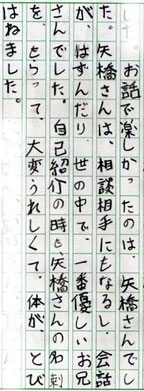 した。
お話で楽しかったのは、矢橋さんでし
た。矢橋さんは、相談相手にもなるし、会話
が、はずんだり、世の中で、一番優しいお兄
さんでした。自己紹介の時も、矢橋さんの名刺
を、もらって、大変うれしくて、体が、とび
はねました。